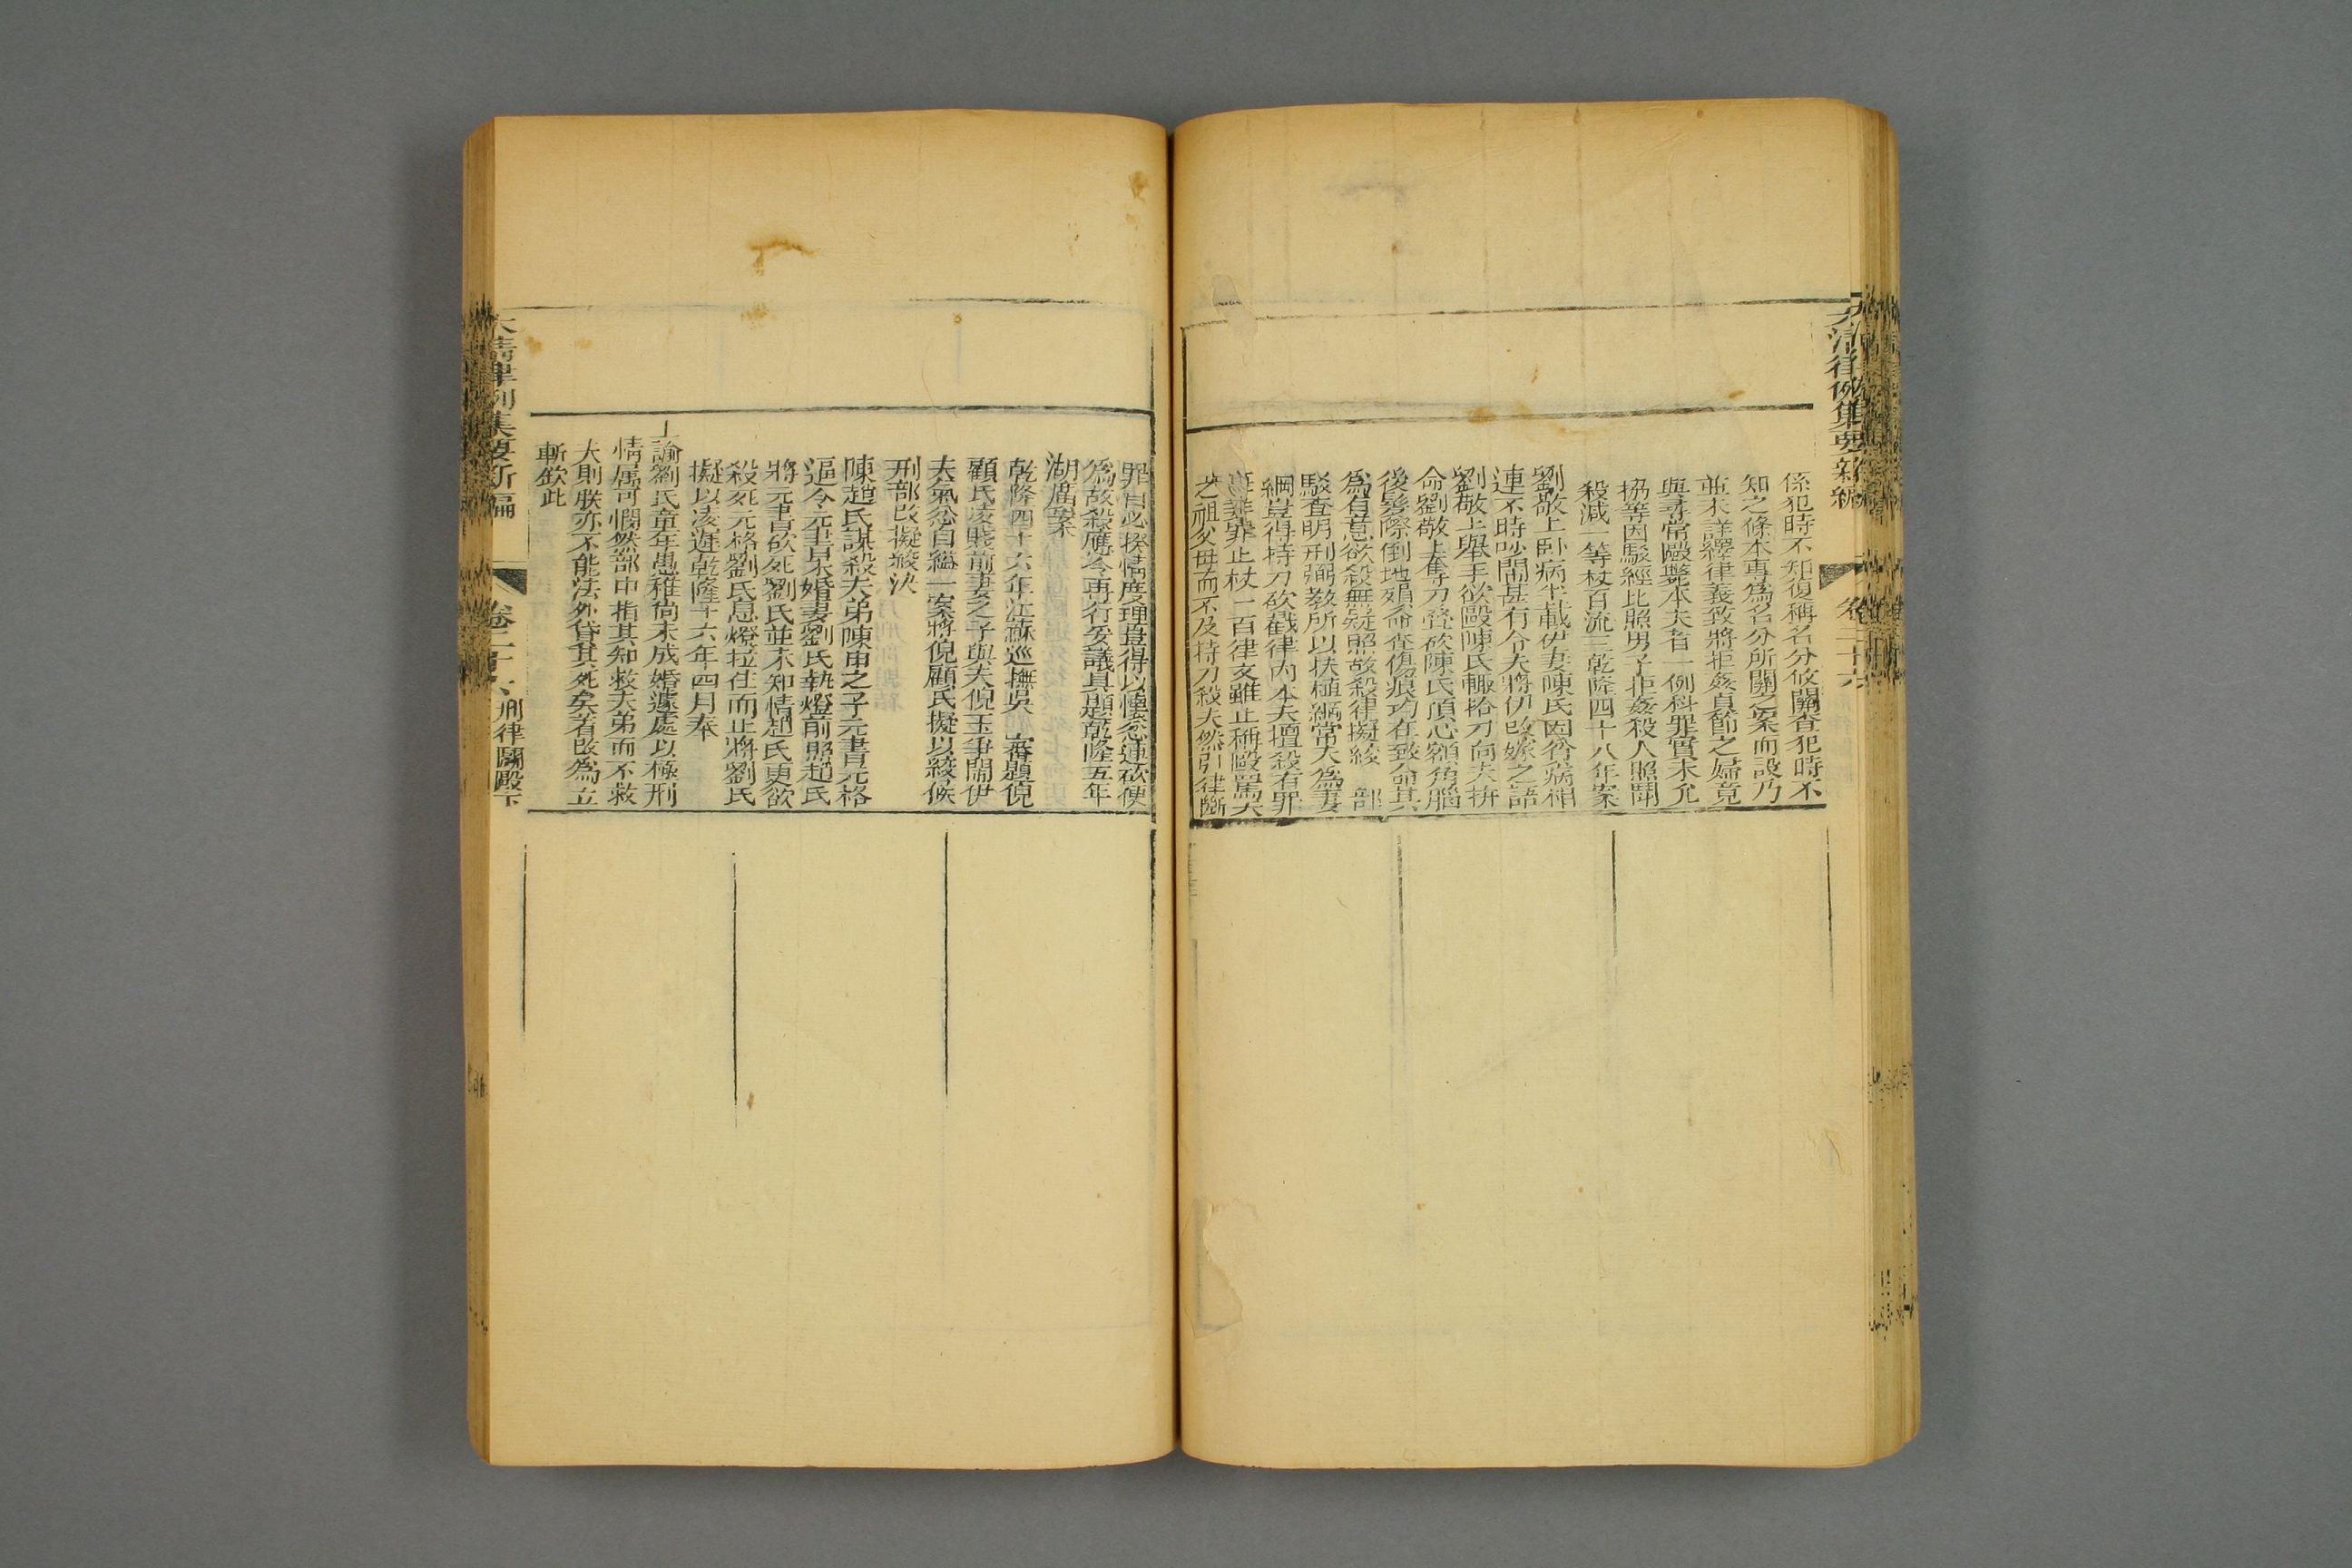 大清律例集要新編
卷二十六
係犯時不知復稱名分攸關查犯時不
知之條本專為名分所關之案而設乃
並未詳繹律義致將拒姦貞節之婦竟
與尋常毆斃本夫者一例科罪實未允
協等因駁經比照男子拒姦殺人照鬬
殺減一等杖百流三乾隆四十八年案
劉敬上臥病半載伊妻陳氏因夫病相
連不時吵鬧甚有令夫將伊改嫁之語
劉敬上舉手欲毆陳氏輙拾刀向夫拚
命劉敬上奪刀疊砍陳氏頂心額角腦
後髮際倒地殞命查傷痕均在致命其
為有意欲殺無疑照故殺律擬絞 部
駁查明刑弼教所以扶植綱常夫為妻
綱豈得持刀砍戳律內本夫擅殺有罪
妻妾罪止杖一百律文雖止稱毆罵夫
之祖父母而不及持刀殺夫然引律斷
罪自必揆情度理豈得以懷忿連砍便
為故殺應令再行妥議具題乾隆五年
湖廣案
乾隆四十六年江蘇巡撫吳 審題倪
顧氏凌賤前妻之子與夫倪玉爭鬧伊
夫氣忿自縊一案將倪顧氏擬以絞候
刑部改擬絞決
陳趙氏謀殺夫弟陳申之子元書元格
逼令元書未婚妻劉氏執燈前照趙氏
將元書砍死劉氏並未知情趙氏更欲
殺死元格劉氏息燈拉住而止將劉氏
擬以凌遲乾隆十六年四月奉
上諭劉氏童年愚稚尚未成婚遽處以極刑
情屬可憫然部中指其知救夫弟而不救
夫則朕亦不能法外貸其死矣著改為立
斬欽此
大清律例集要新編
卷二十六 刑律鬬毆下